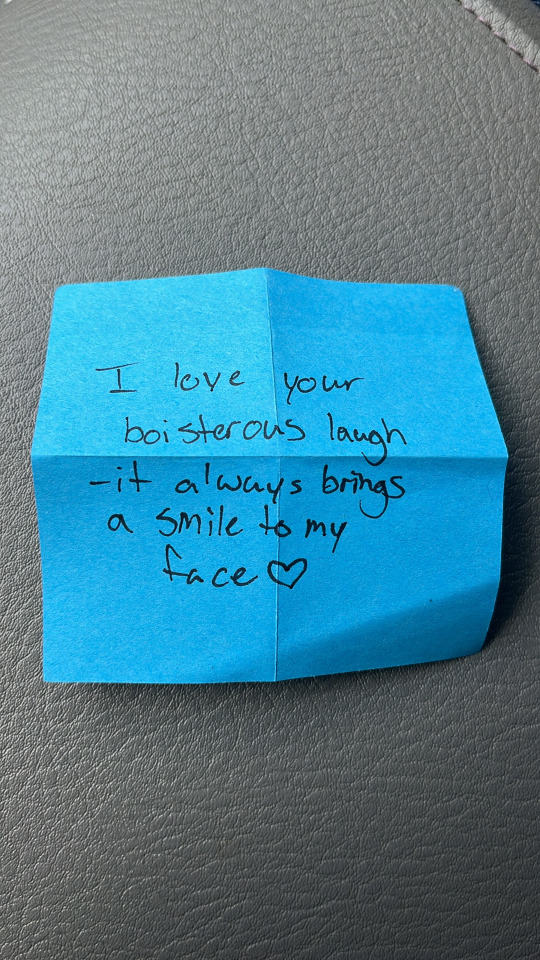 I love your
boisterous laugh
-it always brings
a smile to my
face ♡